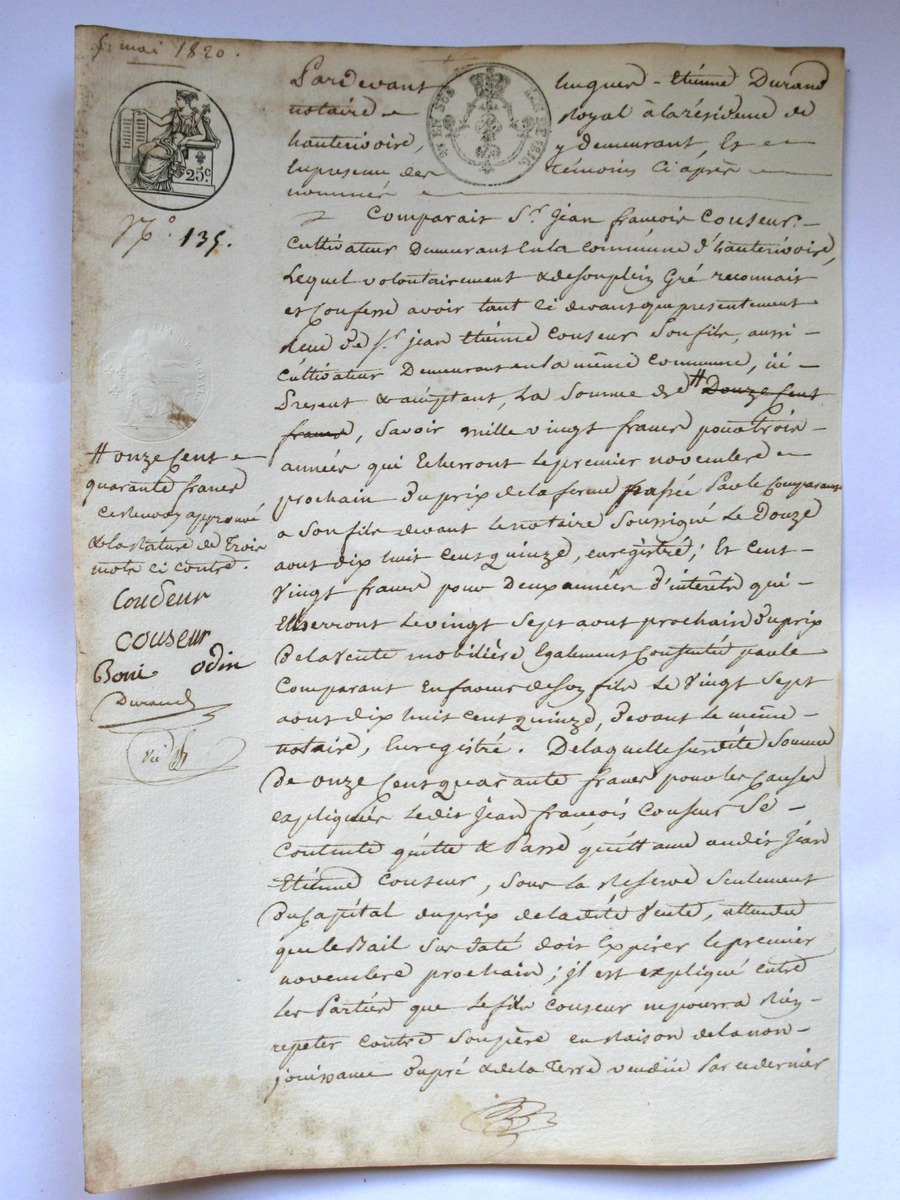 5 mai 1820.
25c
EN SUS
DE 1816.
Pardevant hugues - Etiénne Durand
notaire Royal à la résidence de
hauterivoire, y Demeurant, Et
En presence des témoins Ci après
nommés
N° 135.
Comparait Sr. jean françois Couseur
Cultivateur Demeurant En la Commune d'hauterivoire,
Lequel volontairement & de son plein Gré reconnait
et Confesse avoir tant Ci devant que presentement
Reçu de Sr. jean Etiénne Couseur Son fils, aussi
Cultivateur Demeurant en la même Commune, ici
Present & acceptant, La Somme de # Douze Cent
francs, Savoir mille vingt francs pour trois
années qui Echerront le premier novembre
prochain Du prix de la ferme passée Par le Comparant
a Son fils devant le notaire Soussigné Le Douze
aout dix huit Cent quinze, enregistré; Et Cent
Vingt francs pour Deux années D'intérêts qui
Echerront Le vingt Sept aout prochain Du prix
De la Vente mobilière Egalement Consentie par le
Comparant En faveur de Son fils Le Vingt Sept
aout dix huit Cent quinze, Devant le même
notaire, Enregistré. De laquelle susdite Somme
De onze Cent quarante francs pour les Causes
expliquées Ledit jean françois Couseur Se
Contente quitte & Passe quittance audit jean
Etiénne Couseur, Sous la Réserve Seulement
Du Capital du prix de ladite Vente, attendu
que le Bail Sus daté doit Expirer le premier
novembre prochain; il est expliqué entre
les Parties que le fils Couseur ne pourra Rien
repeter Contre Son père en Raison de la non
jouissance Du pré & de la Terre vendue Par ce dernier
# onze Cent
quarante francs
ce renvoy approuvé
& la rature de Trois
mots ci contre.
Couseur
Couseur
Boni odin
Durand